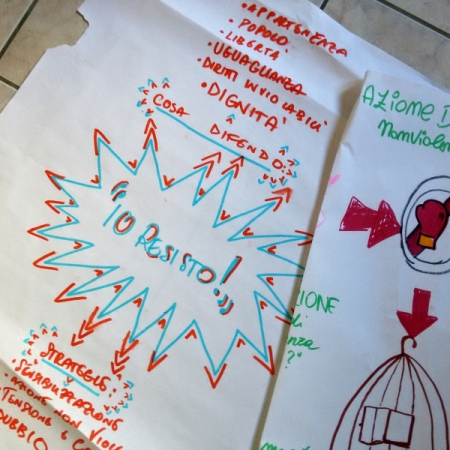 • APPARTENENZA
• POPOLO
• LIBERTÀ
• UGUAGLIANZA
DIRITTI INVIOLABILI
• DIGNITÀ
COSA
DIFENDO?
"IO RESISTO!"
STRATEGIE
SENSIBILIZZAZIONE
AZIONE NON VIOL
TENZIONE E
DUBBIO
AZIONE D
Nonviolen
ZIONE
di
enza
?"